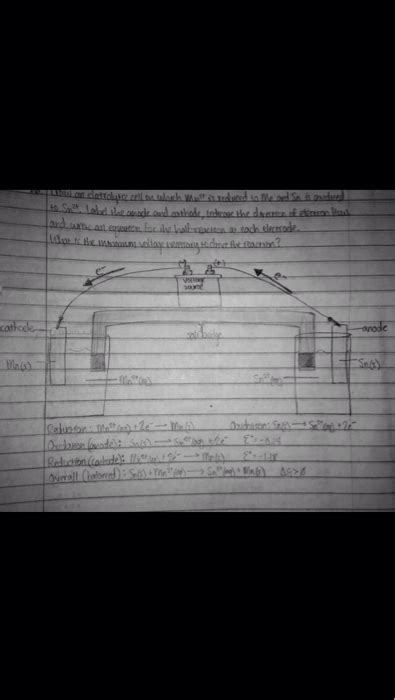 Draw an electrolytic cell in which Mn²⁺ is reduced to Mn and Sn is oxidized
to Sn²⁺. Label the anode and cathode, indicate the direction of electron flow
and write an equation for the half-reaction at each electrode.
What is the minimum voltage necessary to drive the reaction?
(-) (+)
e⁻ e⁻
voltage
source
cathode anode
salt bridge
Mn(s) Sn(s)
Mn²⁺(aq) Sn²⁺(aq)
Reduction: Mn²⁺(aq) + 2e⁻ → Mn(s) Oxidation: Sn(s) → Sn²⁺(aq) + 2e⁻
Oxidation (anode): Sn(s) → Sn²⁺(aq) + 2e⁻ E°=
Reduction (cathode): Mn²⁺(aq) + 2e⁻ → Mn(s) E°= -1.18
Overall (balanced): Sn(s) + Mn²⁺(aq) → Sn²⁺(aq) + Mn(s) ΔG>0